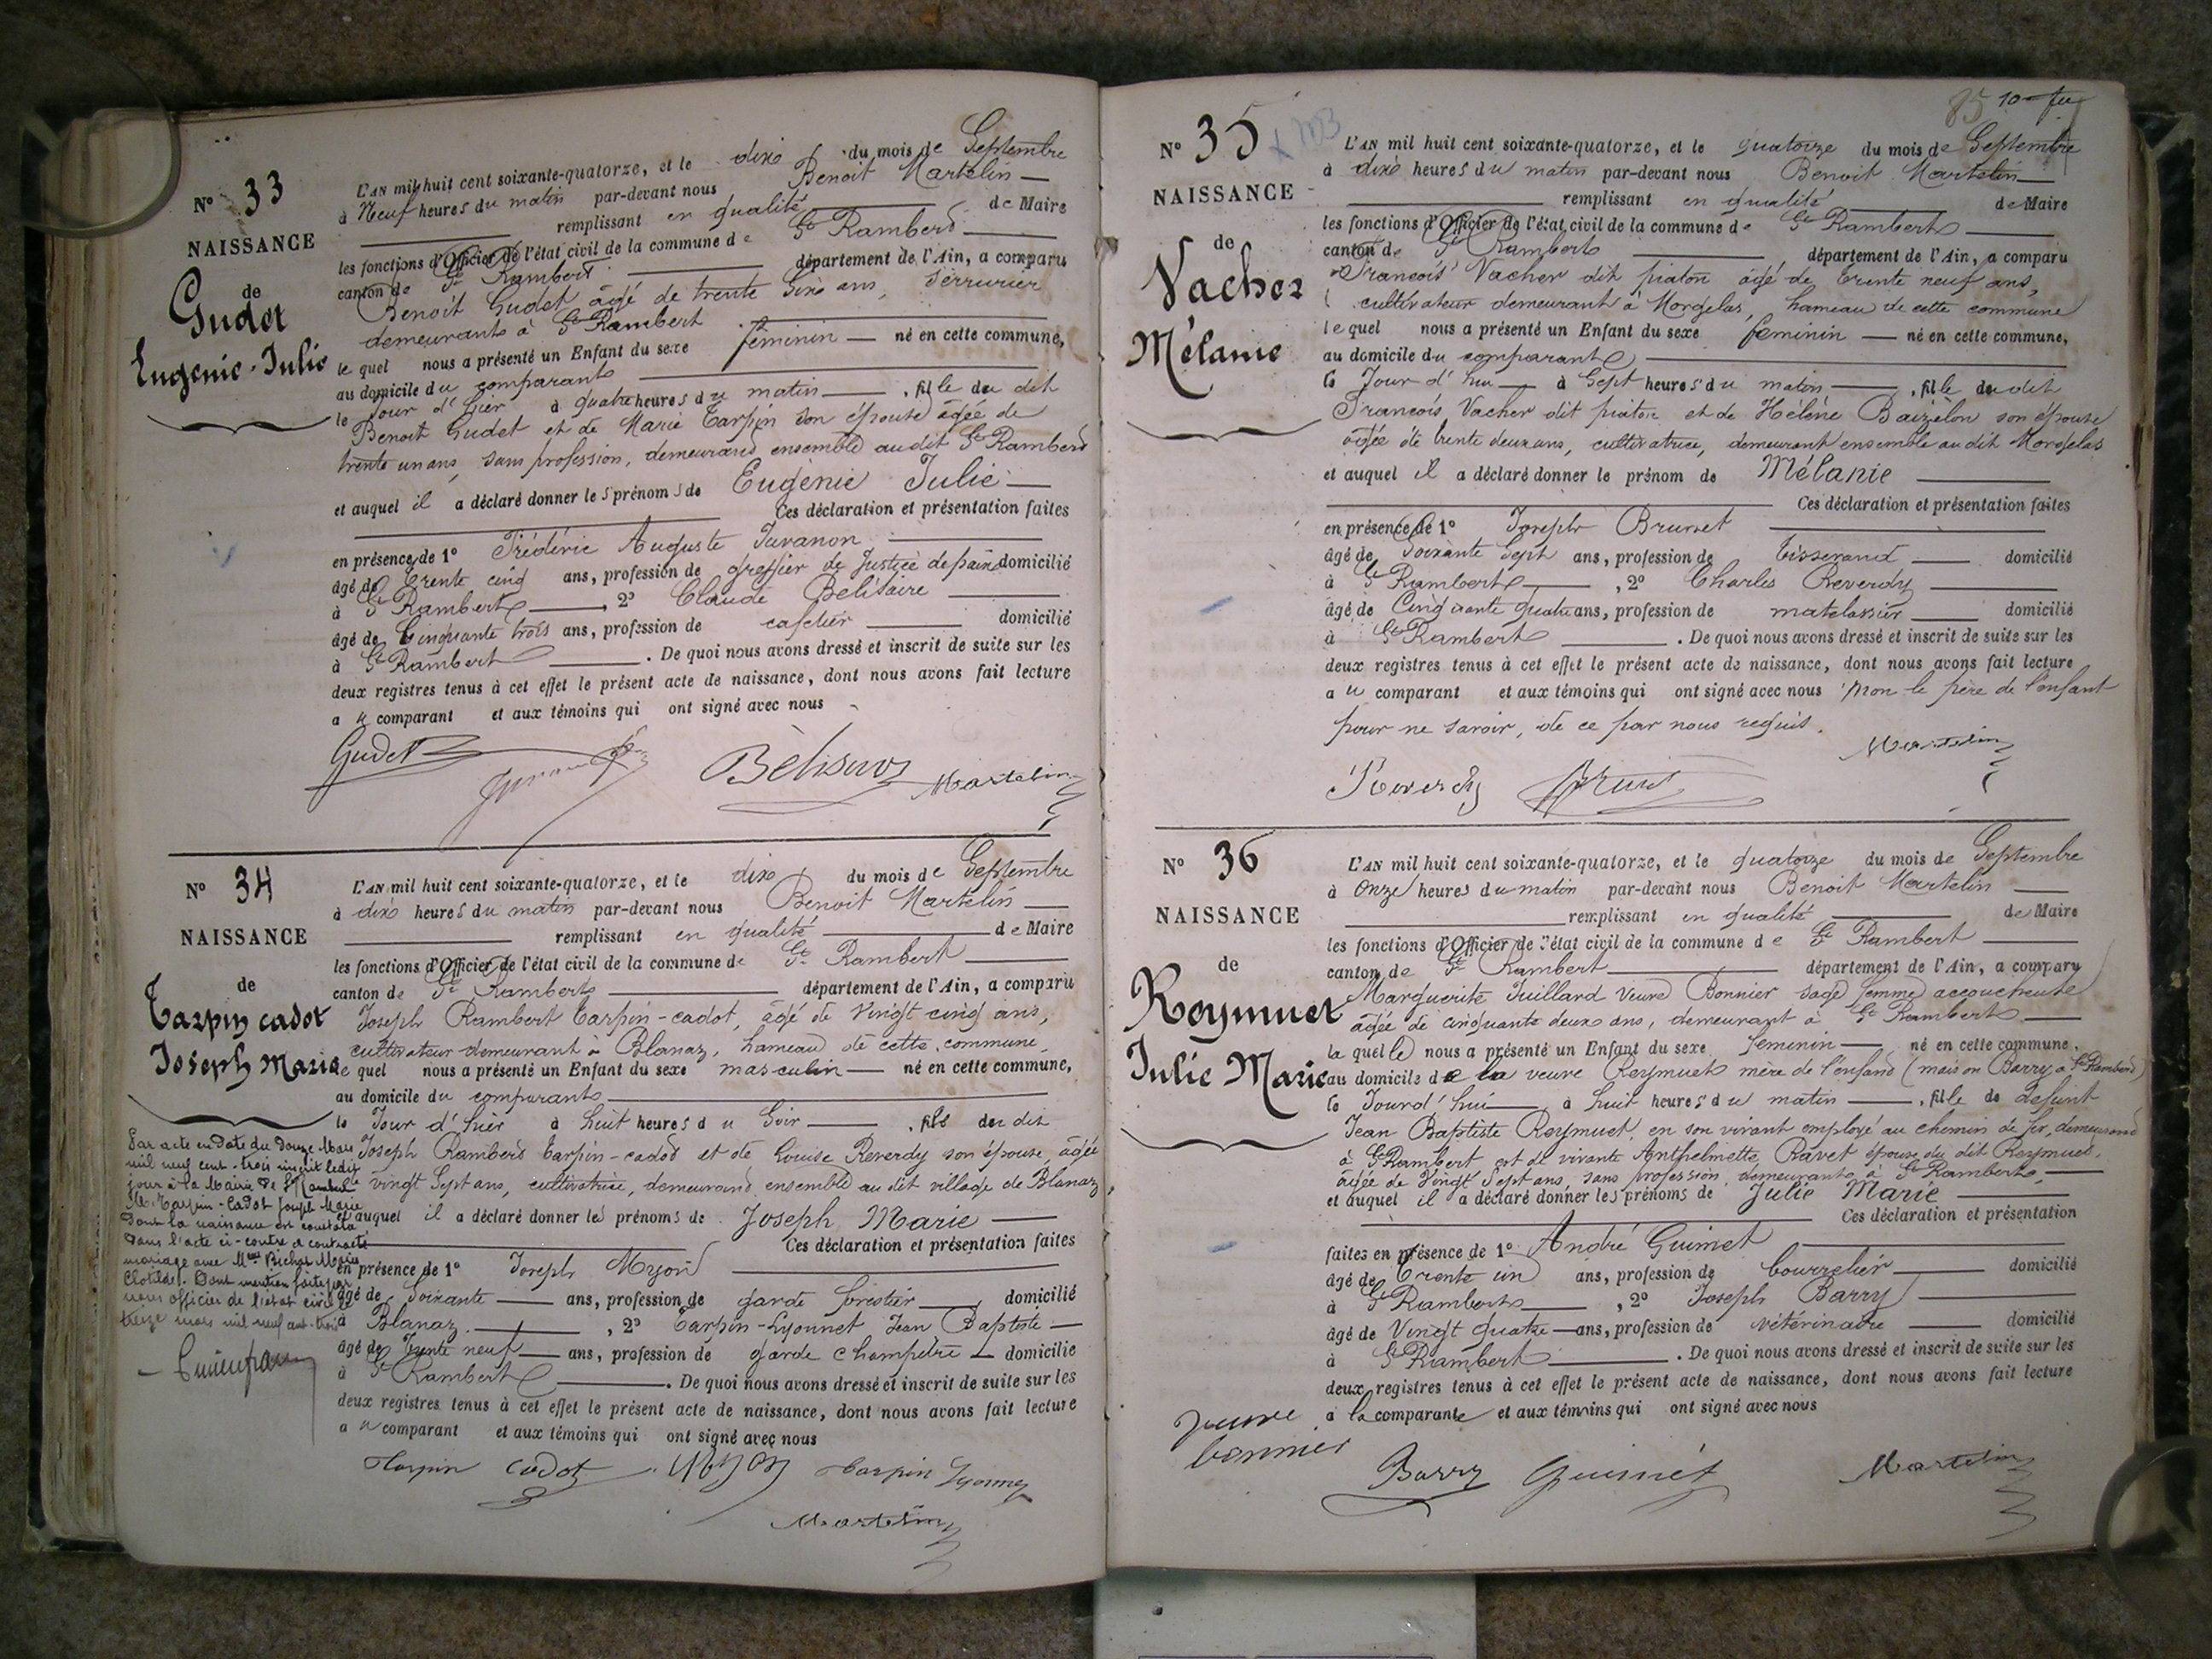 N° 33
NAISSANCE
de
Gudet
Eugenie-Julie
L'AN mil huit cent soixante-quatorze, et le dix du mois de Septembre
à Neuf heures du matin par-devant nous Benoit Martelin
remplissant en qualité de Maire
les fonctions d'Officier de l'état civil de la commune de St Rambert
canton de St Rambert département de l'Ain, a comparu
Benoit Gudet, âgé de trente six ans, serrurier
demeurant à St Rambert
le quel nous a présenté un Enfant du sexe féminin né en cette commune,
au domicile du comparant
le Jour d'hier à quatre heures du matin, fille du dit
Benoit Gudet et de Marie Tarpin son épouse âgée de
trente un ans, sans profession, demeurant ensemble audit St Rambert
et auquel il a déclaré donner les prénoms de Eugénie Julie
Ces déclaration et présentation faites
en présence de 1° Frédéric Auguste Juvanon
âgé de trente cinq ans, profession de greffier de Justice de paix domicilié
à St Rambert, 2° Claude Belisaire
âgé de Cinquante trois ans, profession de cafetier domicilié
à St Rambert. De quoi nous avons dressé et inscrit de suite sur les
deux registres tenus à cet effet le présent acte de naissance, dont nous avons fait lecture
au comparant et aux témoins qui ont signé avec nous
Gudet Martelin
N° 34
NAISSANCE
de
Tarpin cadot
Joseph Marie
L'AN mil huit cent soixante-quatorze, et le dix du mois de Septembre
à dix heures du matin par-devant nous Benoit Martelin
remplissant en qualité de Maire
les fonctions d'Officier de l'état civil de la commune de St Rambert
canton de St Rambert département de l'Ain, a comparu
Joseph Rambert Tarpin-cadot, âgé de vingt cinq ans,
cultivateur demeurant à Blanaz, hameau de cette commune,
le quel nous a présenté un Enfant du sexe masculin né en cette commune,
au domicile du comparant
le Jour d'hier à huit heures du Soir, fils du dit
Joseph Rambert Tarpin-cadot et de Louise Reverdy son épouse, âgée
vingt Sept ans, cultivatrice, demeurant ensemble au dit village de Blanaz
et auquel il a déclaré donner les prénoms de Joseph Marie
Ces déclaration et présentation faites
en présence de 1° Joseph Myon
âgé de Soixante ans, profession de garde forestier domicilié
à Blanaz, 2° Tarpin-Lyonnet Jean Baptiste
âgé de Trente neuf ans, profession de garde champêtre domicilié
à St Rambert. De quoi nous avons dressé et inscrit de suite sur les
deux registres tenus à cet effet le présent acte de naissance, dont nous avons fait lecture
au comparant et aux témoins qui ont signé avec nous
Tarpin cadot Myon Tarpin Lyonnet
Martelin
Par acte en date du douze Mars
mil neuf cent-trois inscrit ledit
jour à la Mairie de St Rambert
M. Tarpin-Cadot Joseph Marie
dont la naissance est constatée
dans l'acte ci-contre a contracté
mariage avec Mlle Bichat Marie
Clotilde. Dont mention faite par
nous officier de l'état civil le
treize mars mil neuf cent-trois
85
N° 35
NAISSANCE
de
Vacher
Mélanie
L'AN mil huit cent soixante-quatorze, et le quatorze du mois de Septembre
à dix heures du matin par-devant nous Benoit Martelin
remplissant en qualité de Maire
les fonctions d'Officier de l'état civil de la commune de St Rambert
canton de St Rambert département de l'Ain, a comparu
François Vacher dit piaton âgé de trente neuf ans,
cultivateur demeurant à Morgelas, hameau de cette commune
le quel nous a présenté un Enfant du sexe feminin né en cette commune,
au domicile du comparant
le Jour d'hui à Sept heures du matin, fille du dit
François Vacher dit piaton et de Hélène Baizelon son épouse
âgée de trente deux ans, cultivatrice, demeurant ensemble au dit Morgelas
et auquel il a déclaré donner le prénom de Mélanie
Ces déclaration et présentation faites
en présence de 1° Joseph Brunet
âgé de Soixante Sept ans, profession de tisserand domicilié
à St Rambert, 2° Charles Reverdy
âgé de Cinquante quatre ans, profession de matelassier domicilié
à St Rambert. De quoi nous avons dressé et inscrit de suite sur les
deux registres tenus à cet effet le présent acte de naissance, dont nous avons fait lecture
au comparant et aux témoins qui ont signé avec nous non le père de l'enfant
pour ne savoir, de ce par nous requis.
Martelin
Reverdy
N° 36
NAISSANCE
de
Reymuet
Julie Marie
L'AN mil huit cent soixante-quatorze, et le quatorze du mois de Septembre
à Onze heures du matin par-devant nous Benoit Martelin
remplissant en qualité de Maire
les fonctions d'Officier de l'état civil de la commune de St Rambert
canton de St Rambert département de l'Ain, a comparu
Marguerite Juillard Veuve Bonnier sage femme accoucheuse
âgée de cinquante deux ans, demeurant à St Rambert
la quelle nous a présenté un Enfant du sexe feminin né en cette commune,
au domicile de la veuve Reymuet mère de l'enfant (maison Barry à St Rambert)
le Jourd'hui à huit heures du matin, fille de defunt
Jean Baptiste Reymuet, en son vivant employé au chemin de fer, demeurant
à St Rambert et de vivante Anthelmette Ravet épouse du dit Reymuet,
âgée de Vingt Sept ans, sans profession, demeurant à St Rambert,
et auquel il a déclaré donner les prénoms de Julie Marie
Ces déclaration et présentation
faites en présence de 1° André Guinet
âgé de Trente un ans, profession de bourrelier domicilié
à St Rambert, 2° Joseph Barry
âgé de Vingt quatre ans, profession de vétérinaire domicilié
à St Rambert. De quoi nous avons dressé et inscrit de suite sur les
deux registres tenus à cet effet le présent acte de naissance, dont nous avons fait lecture
à la comparante et aux témoins qui ont signé avec nous
veuve
bonnier
Barry Guinet Martelin